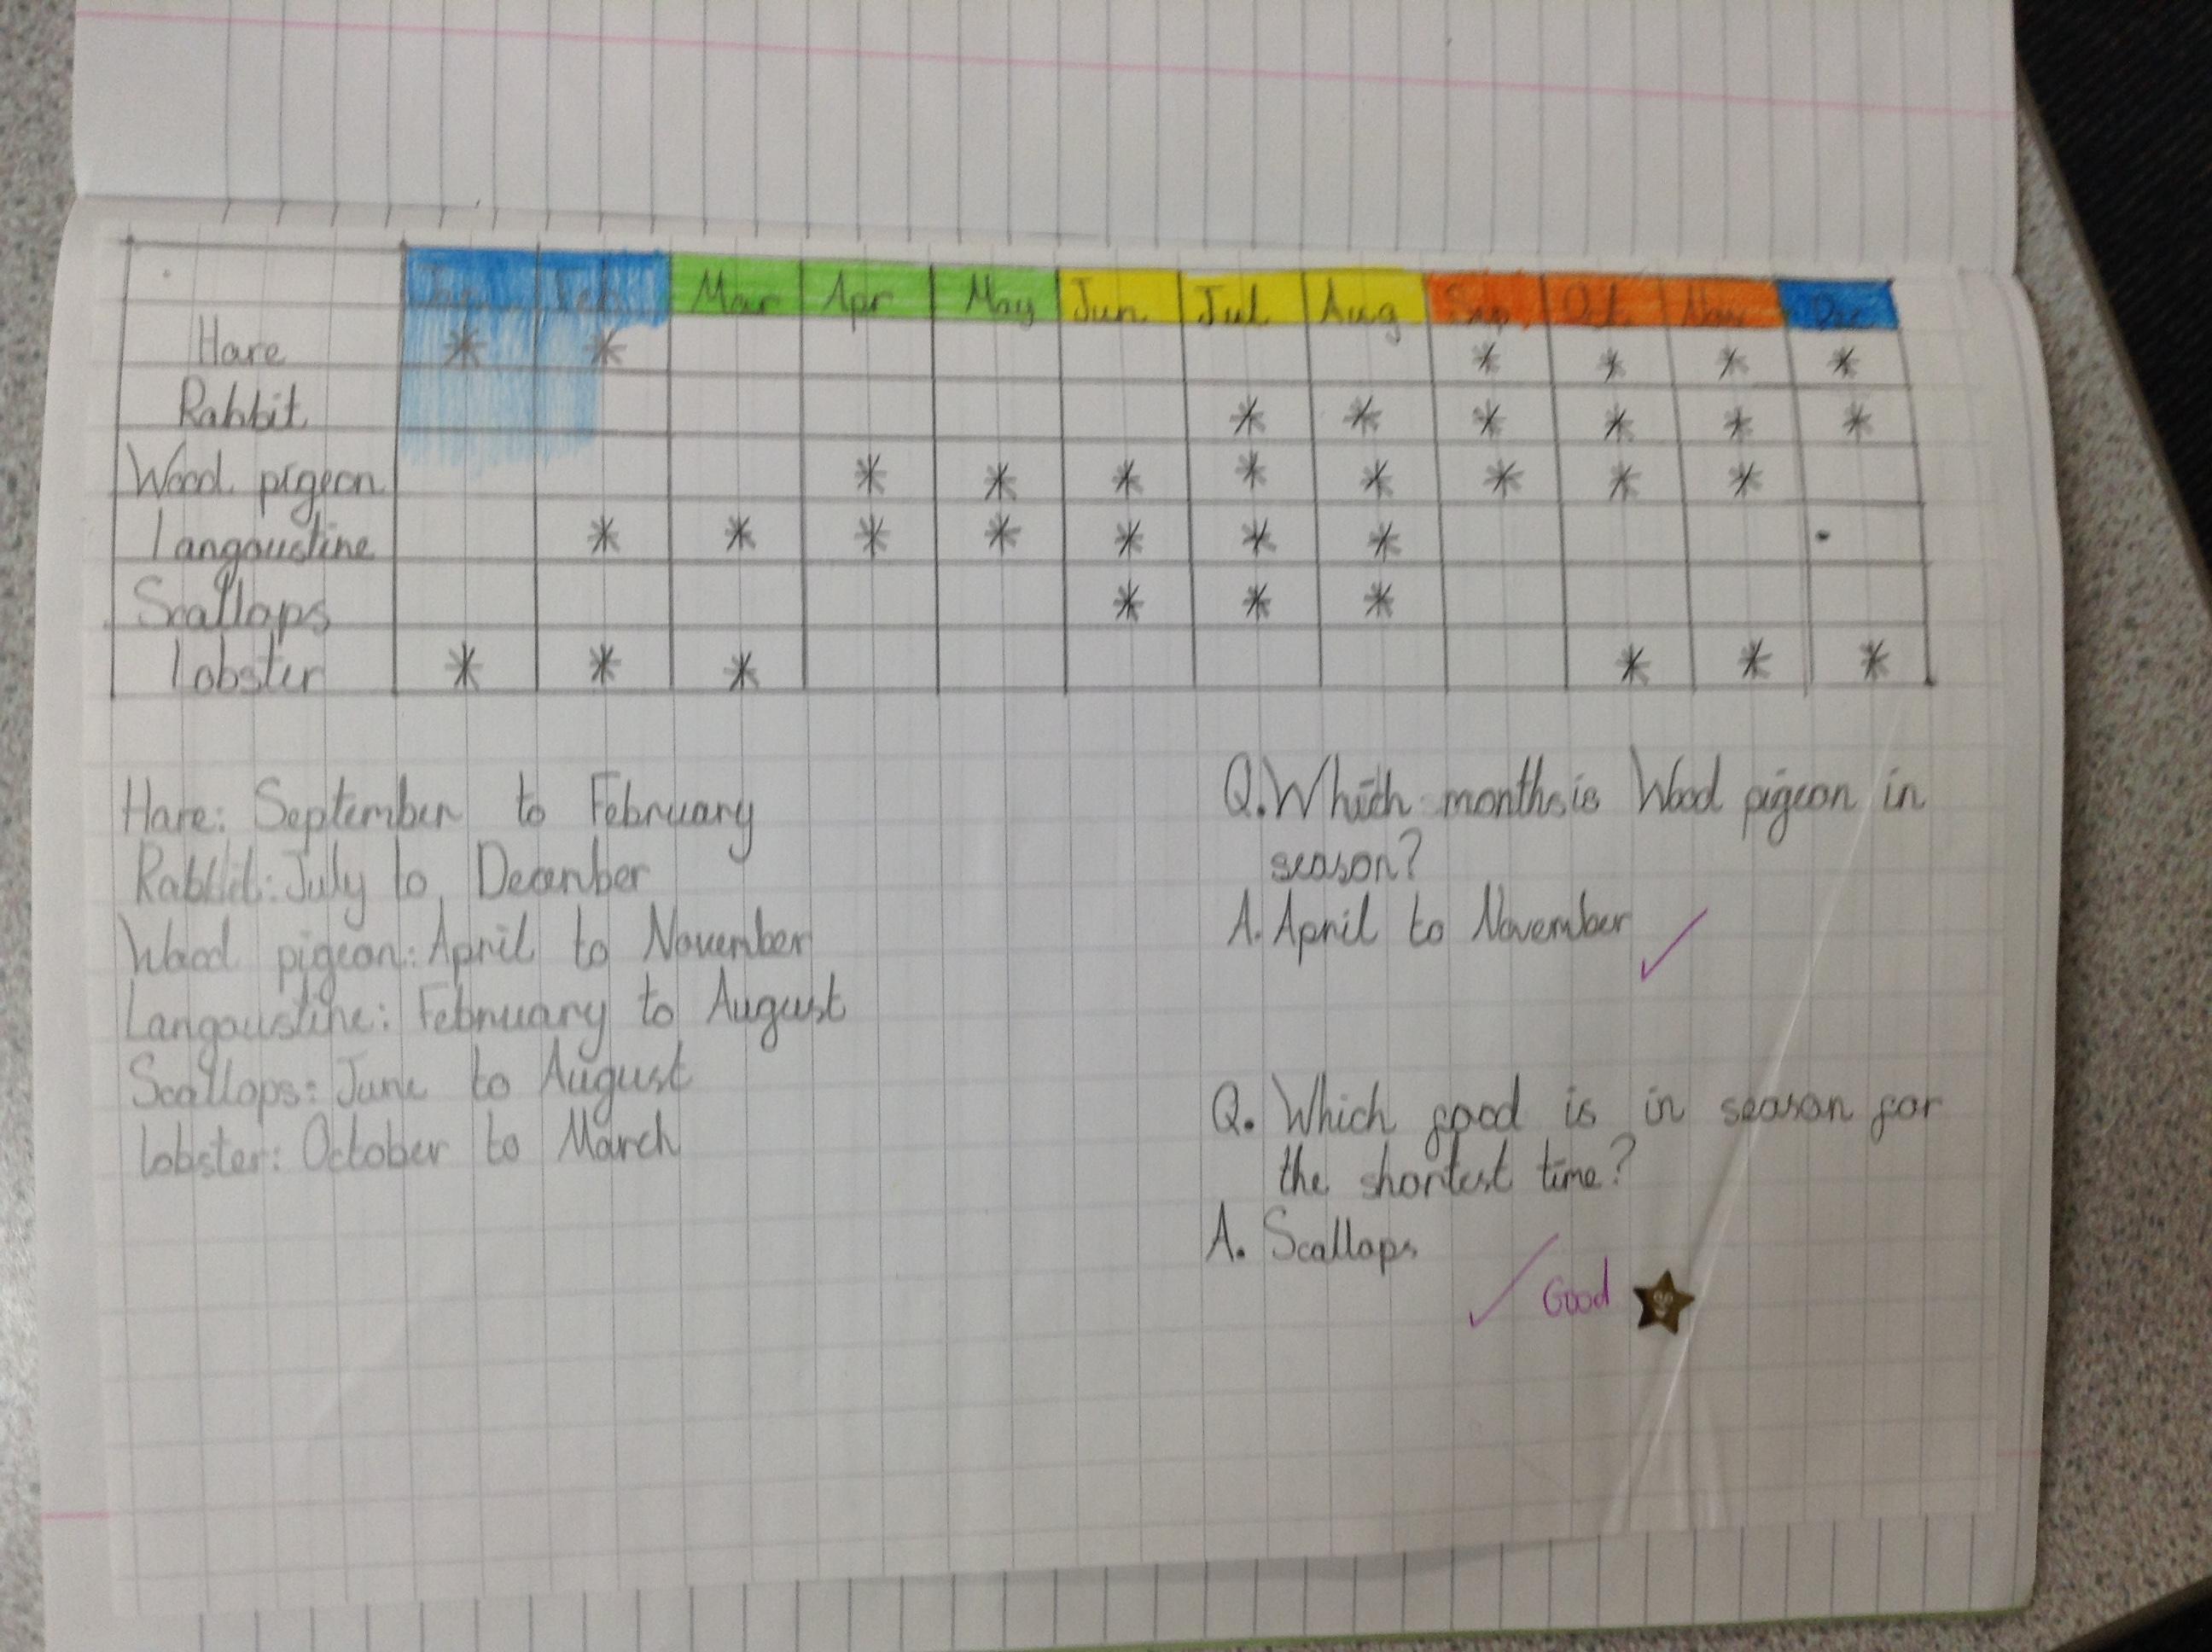 Jan Feb Mar Apr May Jun Jul Aug Sep Oct Nov Dec
Hare * * * * * *
Rabbit * * * * * *
Wood pigeon * * * * * * * *
Langoustine * * * * * * *
Scallops * * *
Lobster * * * * * *
Hare: September to February
Rabbit: July to December
Wood pigeon: April to November
Langoustine: February to August
Scallops: June to August
Lobster: October to March
Q. Which months is Wood pigeon in
season?
A. April to November
Q. Which food is in season for
the shortest time?
A. Scallops
Good